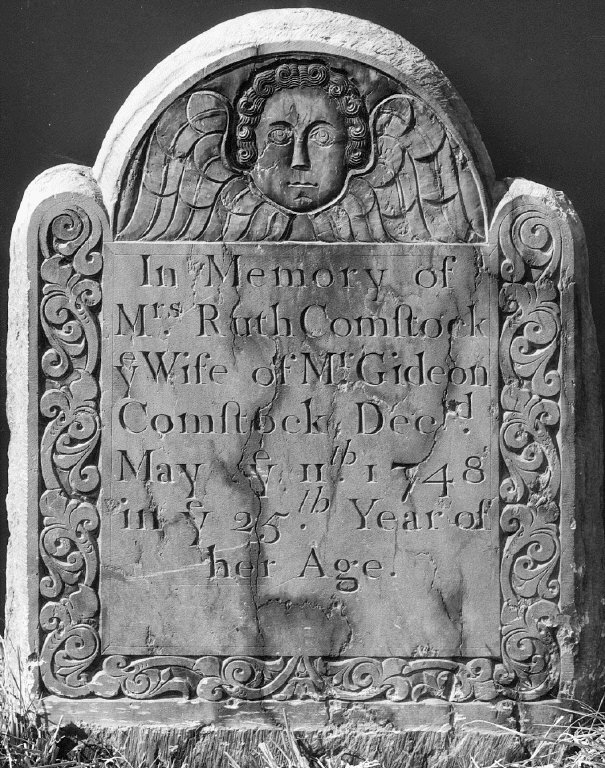 In Memory of
Mrs. Ruth Comſtock
ye Wife of Mr. Gideon
Comſtock Decd.
May ye 11th. 1748
in ye 25.th Year of
her Age.